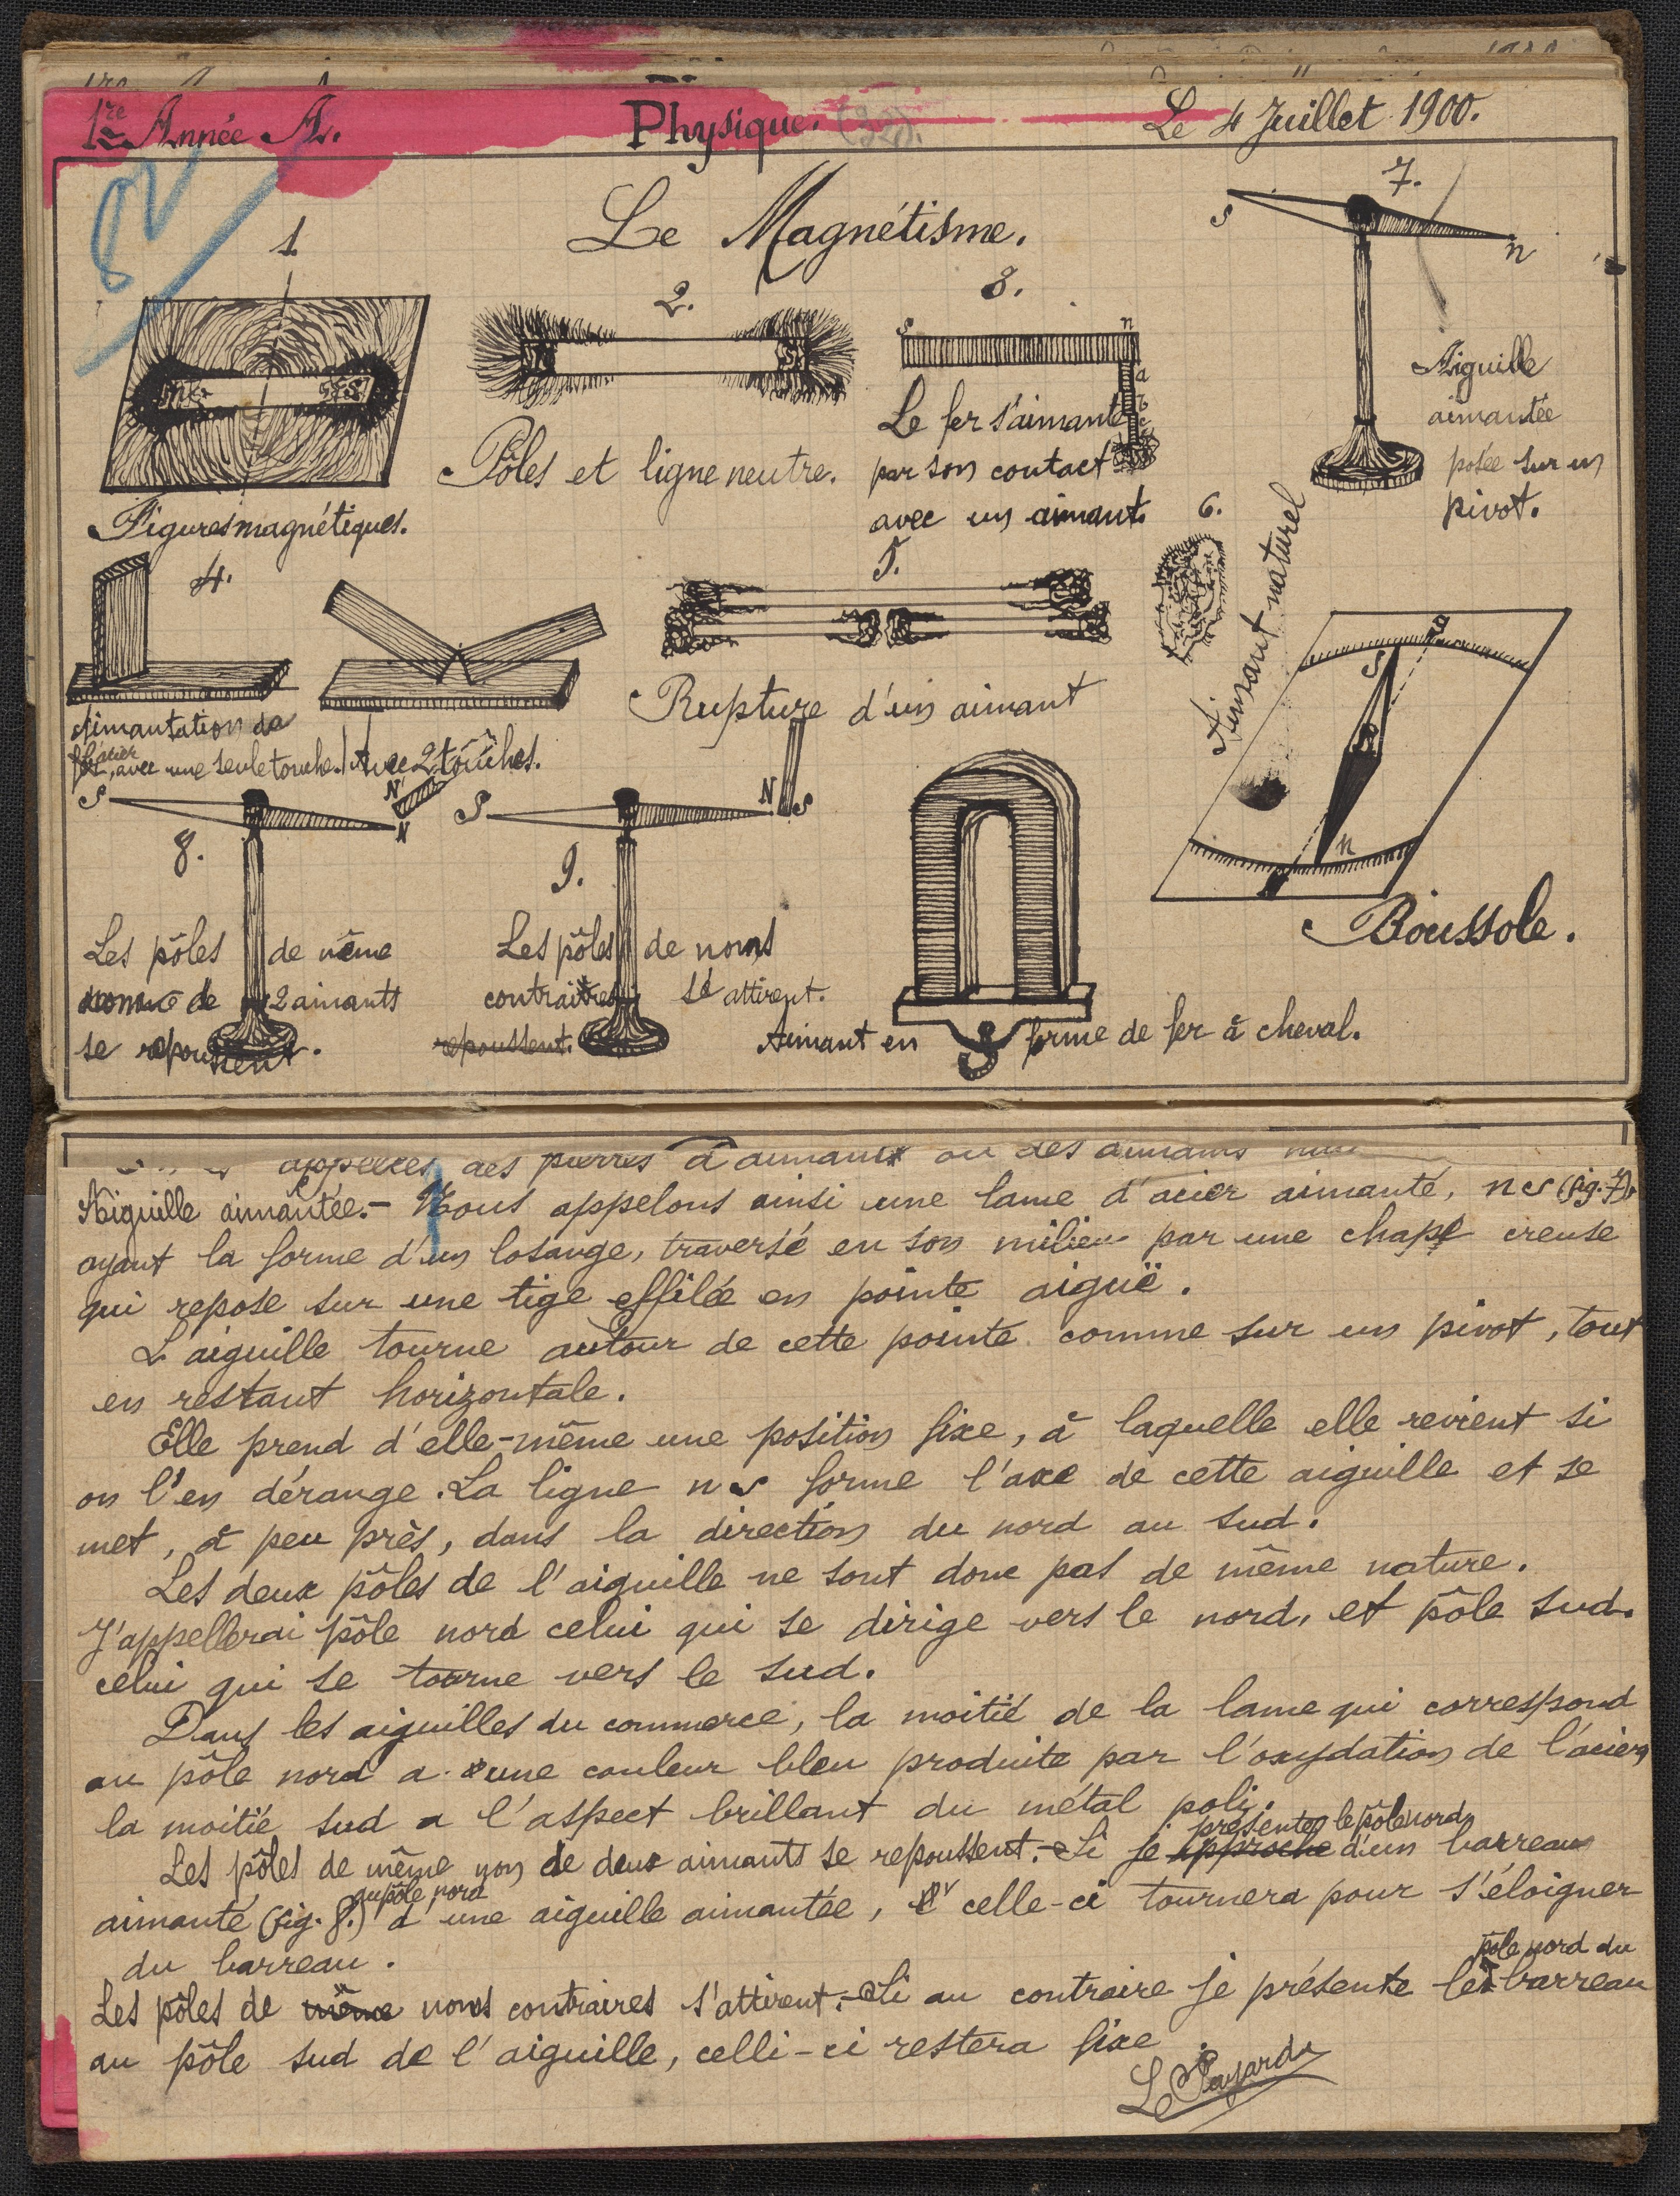 1re Année A.
Physique. (32).
Le 4 Juillet 1900.
Le Magnétisme.
1.
Figures magnétiques.
2.
Pôles et ligne neutre.
3.
S n
a
Le fer s'aimante
par son contact
avec un aimant.
7.
S n
Aiguille
aimantée
posée sur un
pivot.
4.
Aimantation de
l'acier
avec une seule touche. Avec 2 touches.
5.
Rupture d'un aimant
6.
Aimant naturel
S
n
Boussole.
S N' N
8.
Les pôles de même
nom de 2 aimants
se repoussent.
S N S
9.
Les pôles de noms
contraires s'attirent.
repoussent.
Aimant en forme de fer à cheval.
appelées des pierres d'aimant ou des aimants
Aiguille aimantée.- Nous appelons ainsi une lame d'acier aimanté, ns (fig. 7),
ayant la forme d'un losange, traversé en son milieu par une chape creuse
qui repose sur une tige effilée en pointe aiguë.
L'aiguille tourne autour de cette pointe comme sur un pivot, tout
en restant horizontale.
Elle prend d'elle-même une position fixe, à laquelle elle revient si
on l'en dérange. La ligne ns forme l'axe de cette aiguille et se
met, à peu près, dans la direction du nord au sud.
Les deux pôles de l'aiguille ne sont donc pas de même nature.
J'appellerai pôle nord celui qui se dirige vers le nord, et pôle sud.
celui qui se tourne vers le sud.
Dans les aiguilles du commerce, la moitié de la lame qui correspond
au pôle nord a une couleur bleu produite par l'oxydation de l'acier,
la moitié sud a l'aspect brillant du métal poli.
présente le pôle nord
Les pôles de même nom de deux aimants se repoussent.- Si je approche d'un barreau
au pôle nord
aimanté (fig. 8.) d'une aiguille aimantée, celle-ci tournera pour s'éloigner
du barreau.
pôle nord du
Les pôles de même noms contraires s'attirent.- Si au contraire je présente le barreau
au pôle sud de l'aiguille, celli-ci restera fixe.